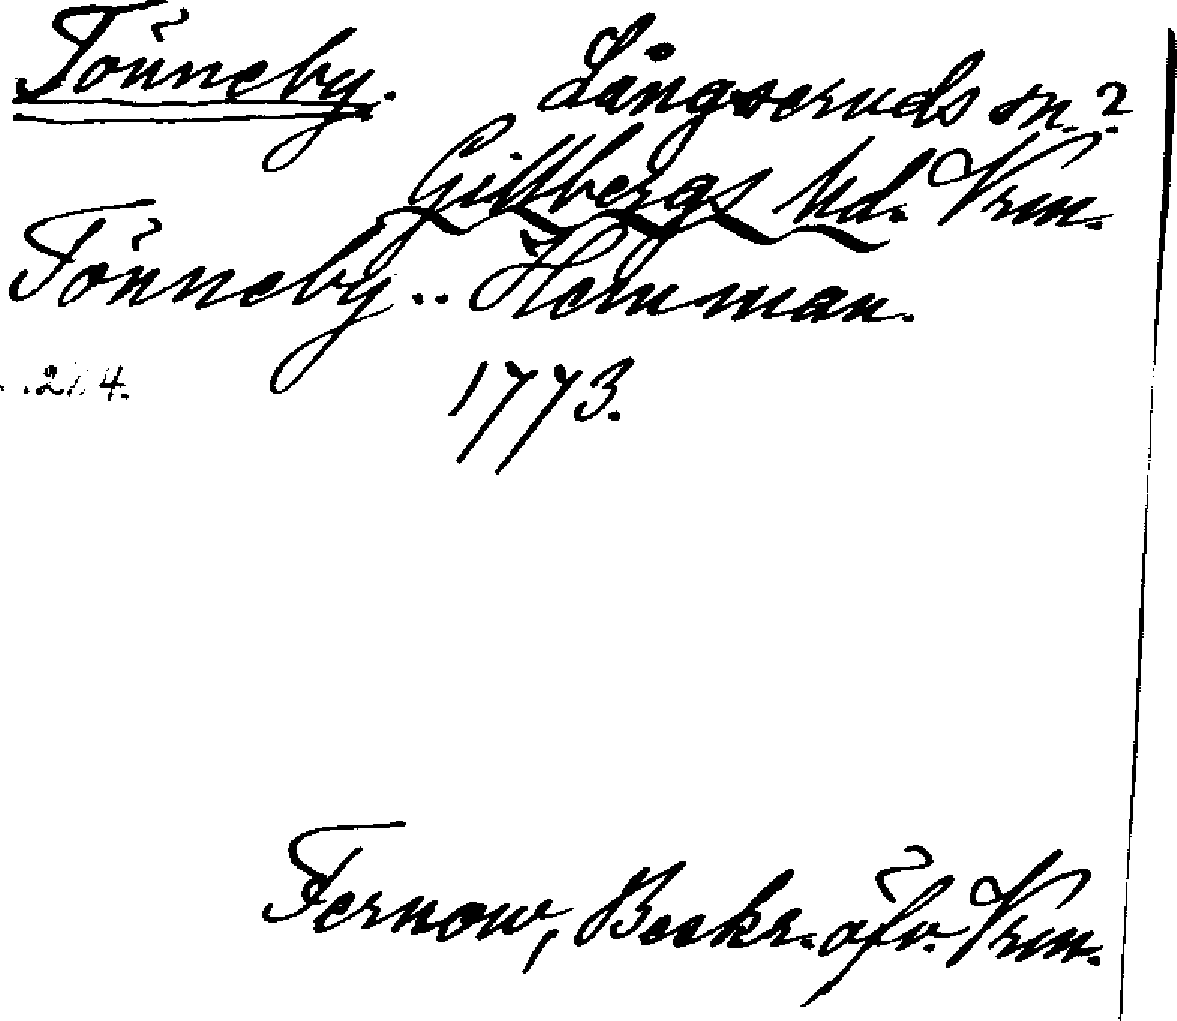 Tönneby. Långseruds sn.?
Gillbergs hd. Vrm.
Tönneby.. Hemman.
1773.
Fernow, Beskr. öfv. Vrm.